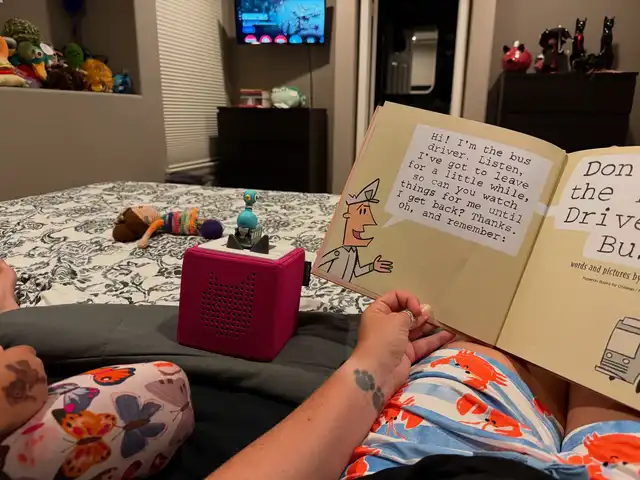 Hi! I'm the bus
driver. Listen,
I've got to leave
for a little while,
so can you watch
things for me until
I get back? Thanks.
Oh, and remember:
Don
the
Drive
Bu
words and pictures by
Hyperion Books for Children